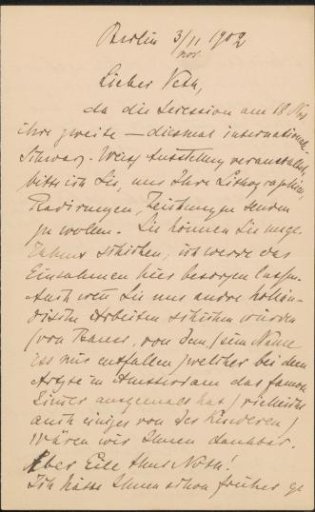 Berlin 3/11 1902
nov.
Lieber Veth,
da die Secession am 18 Nov
ihre zweite — diesmal internationale
Schwarz-Weiss Ausstellung veranstaltet,
bitte ich Sie, uns Ihre Lithographien,
Radirungen, Zeichnungen senden
zu wollen. Sie können Sie unge-
rahmt schicken, ich werde das
Einrahmen hier besorgen lassen.
Auch wenn Sie uns andre hollän-
dische Arbeiten schicken würden
(von Bauer, von dem, sein Name
ist mir entfallen, welcher bei dem
Arzte in Amsterdam das famose
Zimer ausgemalt hat, vielleicht
auch einiges von der
wären wir Ihnen dankbar.
Aber Eile thut Noth!
Ich hätte Ihnen schon früher ge